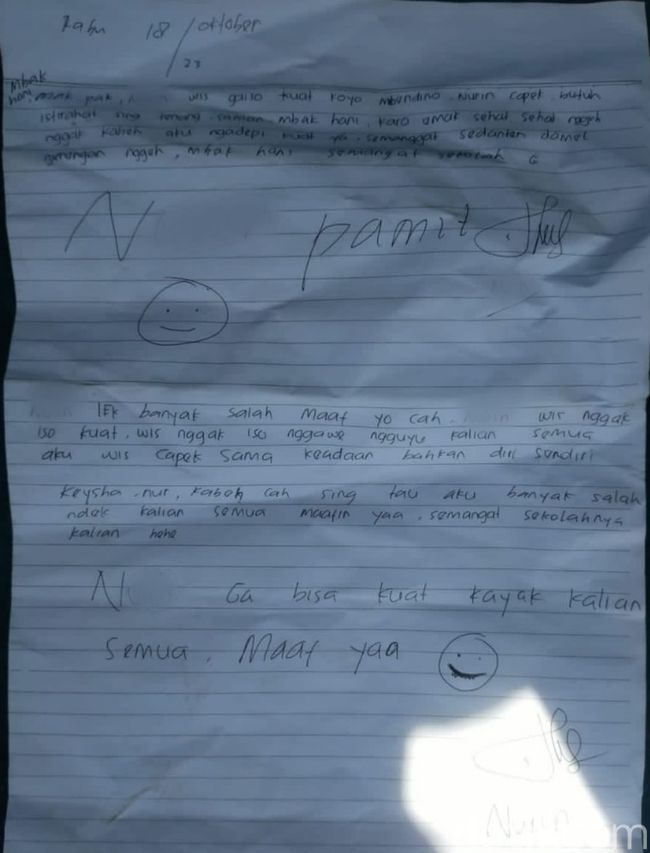 Rabu 18 / oktober
/ 23
Mbak
hani pak, wis gak kuat koyo mbendino. Nurin capek. butuh
istirahat sing tenang. saman. mbak hani. karo emak sehat sehat nggeh
nggak kabeh aku ngadepi kuat ya. semanggat sedanten damel
nggeh, mbak hani semangat
N pamit
IEk banyak salah Maaf yo cah. wis nggak
iso kuat. wis nggak iso nggawe ngguyu kalian semua
aku wis capek sama keadaan bahkan diri sendiri
Keysha. nur, kabeh cah sing tau aku banyak salah
ndek kalian semua maafin yaa. semangat sekolahnya
kalian hehe
N Ga bisa kuat kayak kalian
semua. Maaf yaa
Nurin